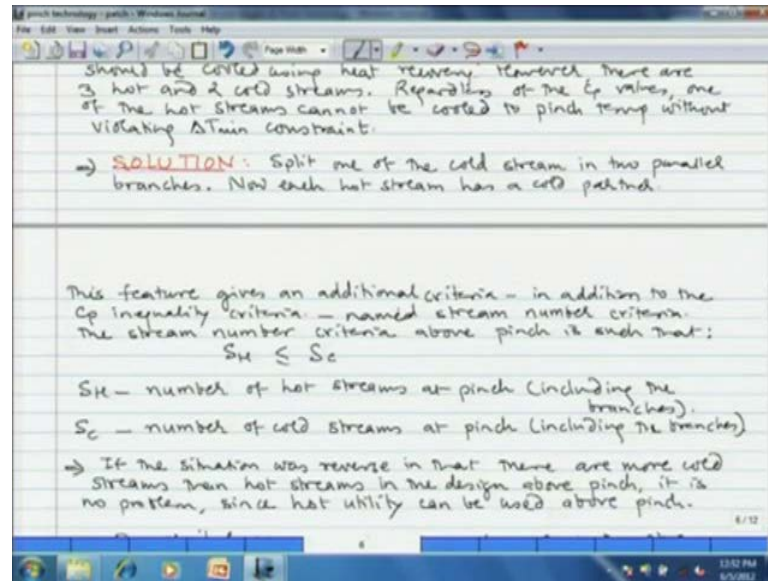 pinch technology - patch - Windows Journal
File Edit View Insert Actions Tools Help
Page Width
should be cooled using heat recovery. However there are
3 hot and 2 cold streams. Regardless of the Cp values, one
of the hot streams cannot be cooled to pinch temp without
violating ΔTmin constraint.
⇒ SOLUTION: Split one of the cold stream in two parallel
branches. Now each hot stream has a cold partner.
This feature gives an additional criteria – in addition to the
Cp inequality criteria – named stream number criteria.
The stream number criteria above pinch is such that:
SH ≤ Sc
SH – number of hot streams at pinch (including the
branches).
Sc – number of cold streams at pinch (including the branches)
⇒ If the situation was reverse in that there are more cold
streams than hot streams in the design above pinch, it is
no problem, since hot utility can be used above pinch.
6/12
6
12:52 PM
6/5/2012